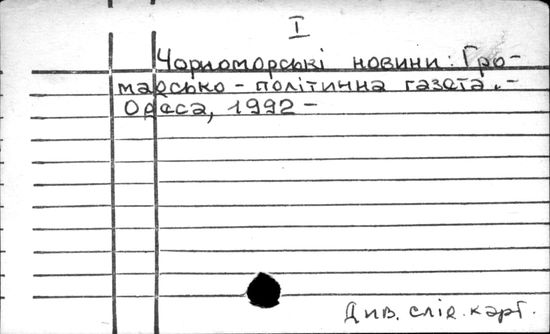 I
Чорноморські новини: Гро-
мадсько-політична газета.-
Одеса, 1992-
Див. слід. карт.